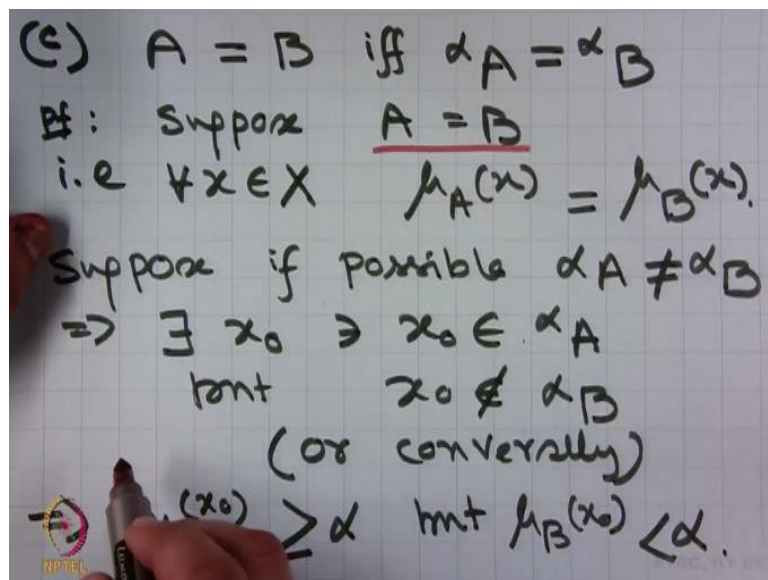 (c) A = B iff αA = αB
Pf: Suppose A = B
i.e ∀ x ∈ X μA(x) = μB(x).
Suppose if possible αA ≠ αB
=> ∃ x0 ∋ x0 ∈ αA
but x0 ∉ αB
(or conversally)
=> (x0) > α but μB(x0) < α.
NPTEL